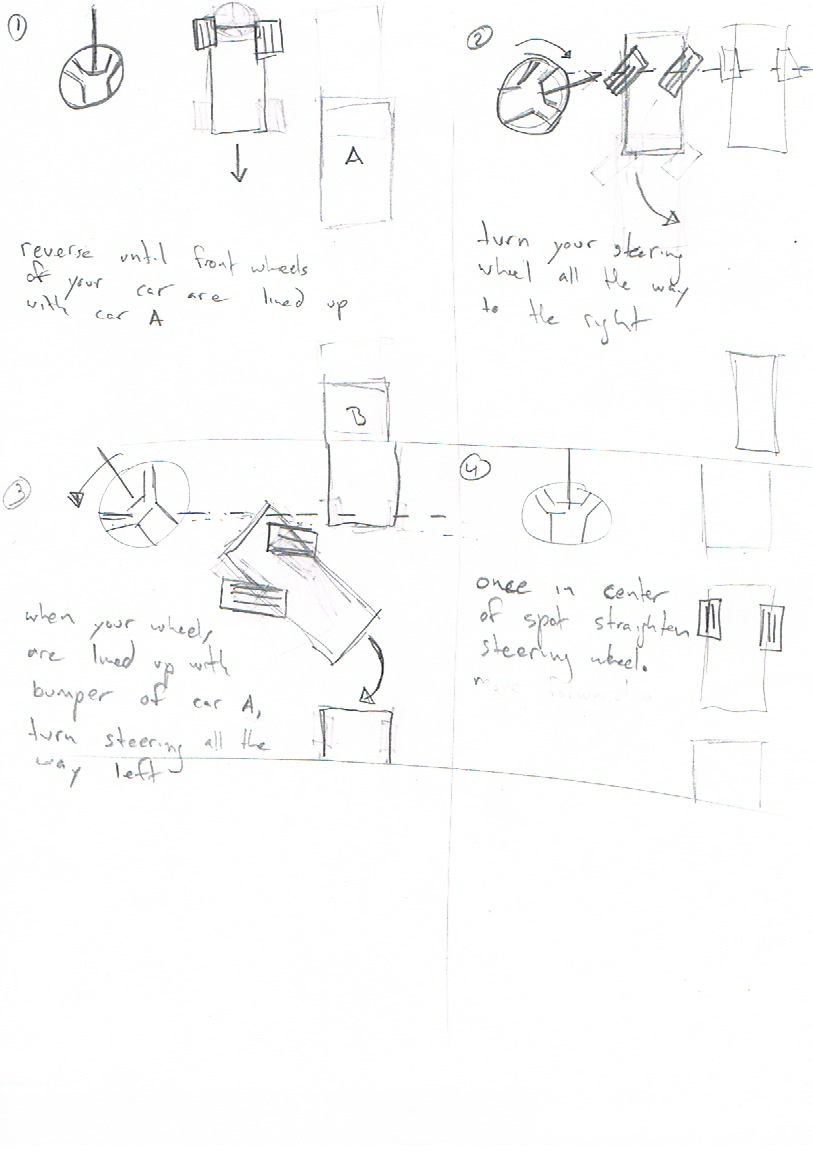 1
A
reverse until front wheels
of your car are lined up
with car A
2
turn your steering
wheel all the way
to the right
B
3
when your wheels,
are lined up with
bumper of car A,
turn steering all the
way left
4
once in center
of spot straighten
steering wheel.